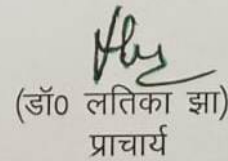 (डॉ0 लतिका झा)
प्राचार्य